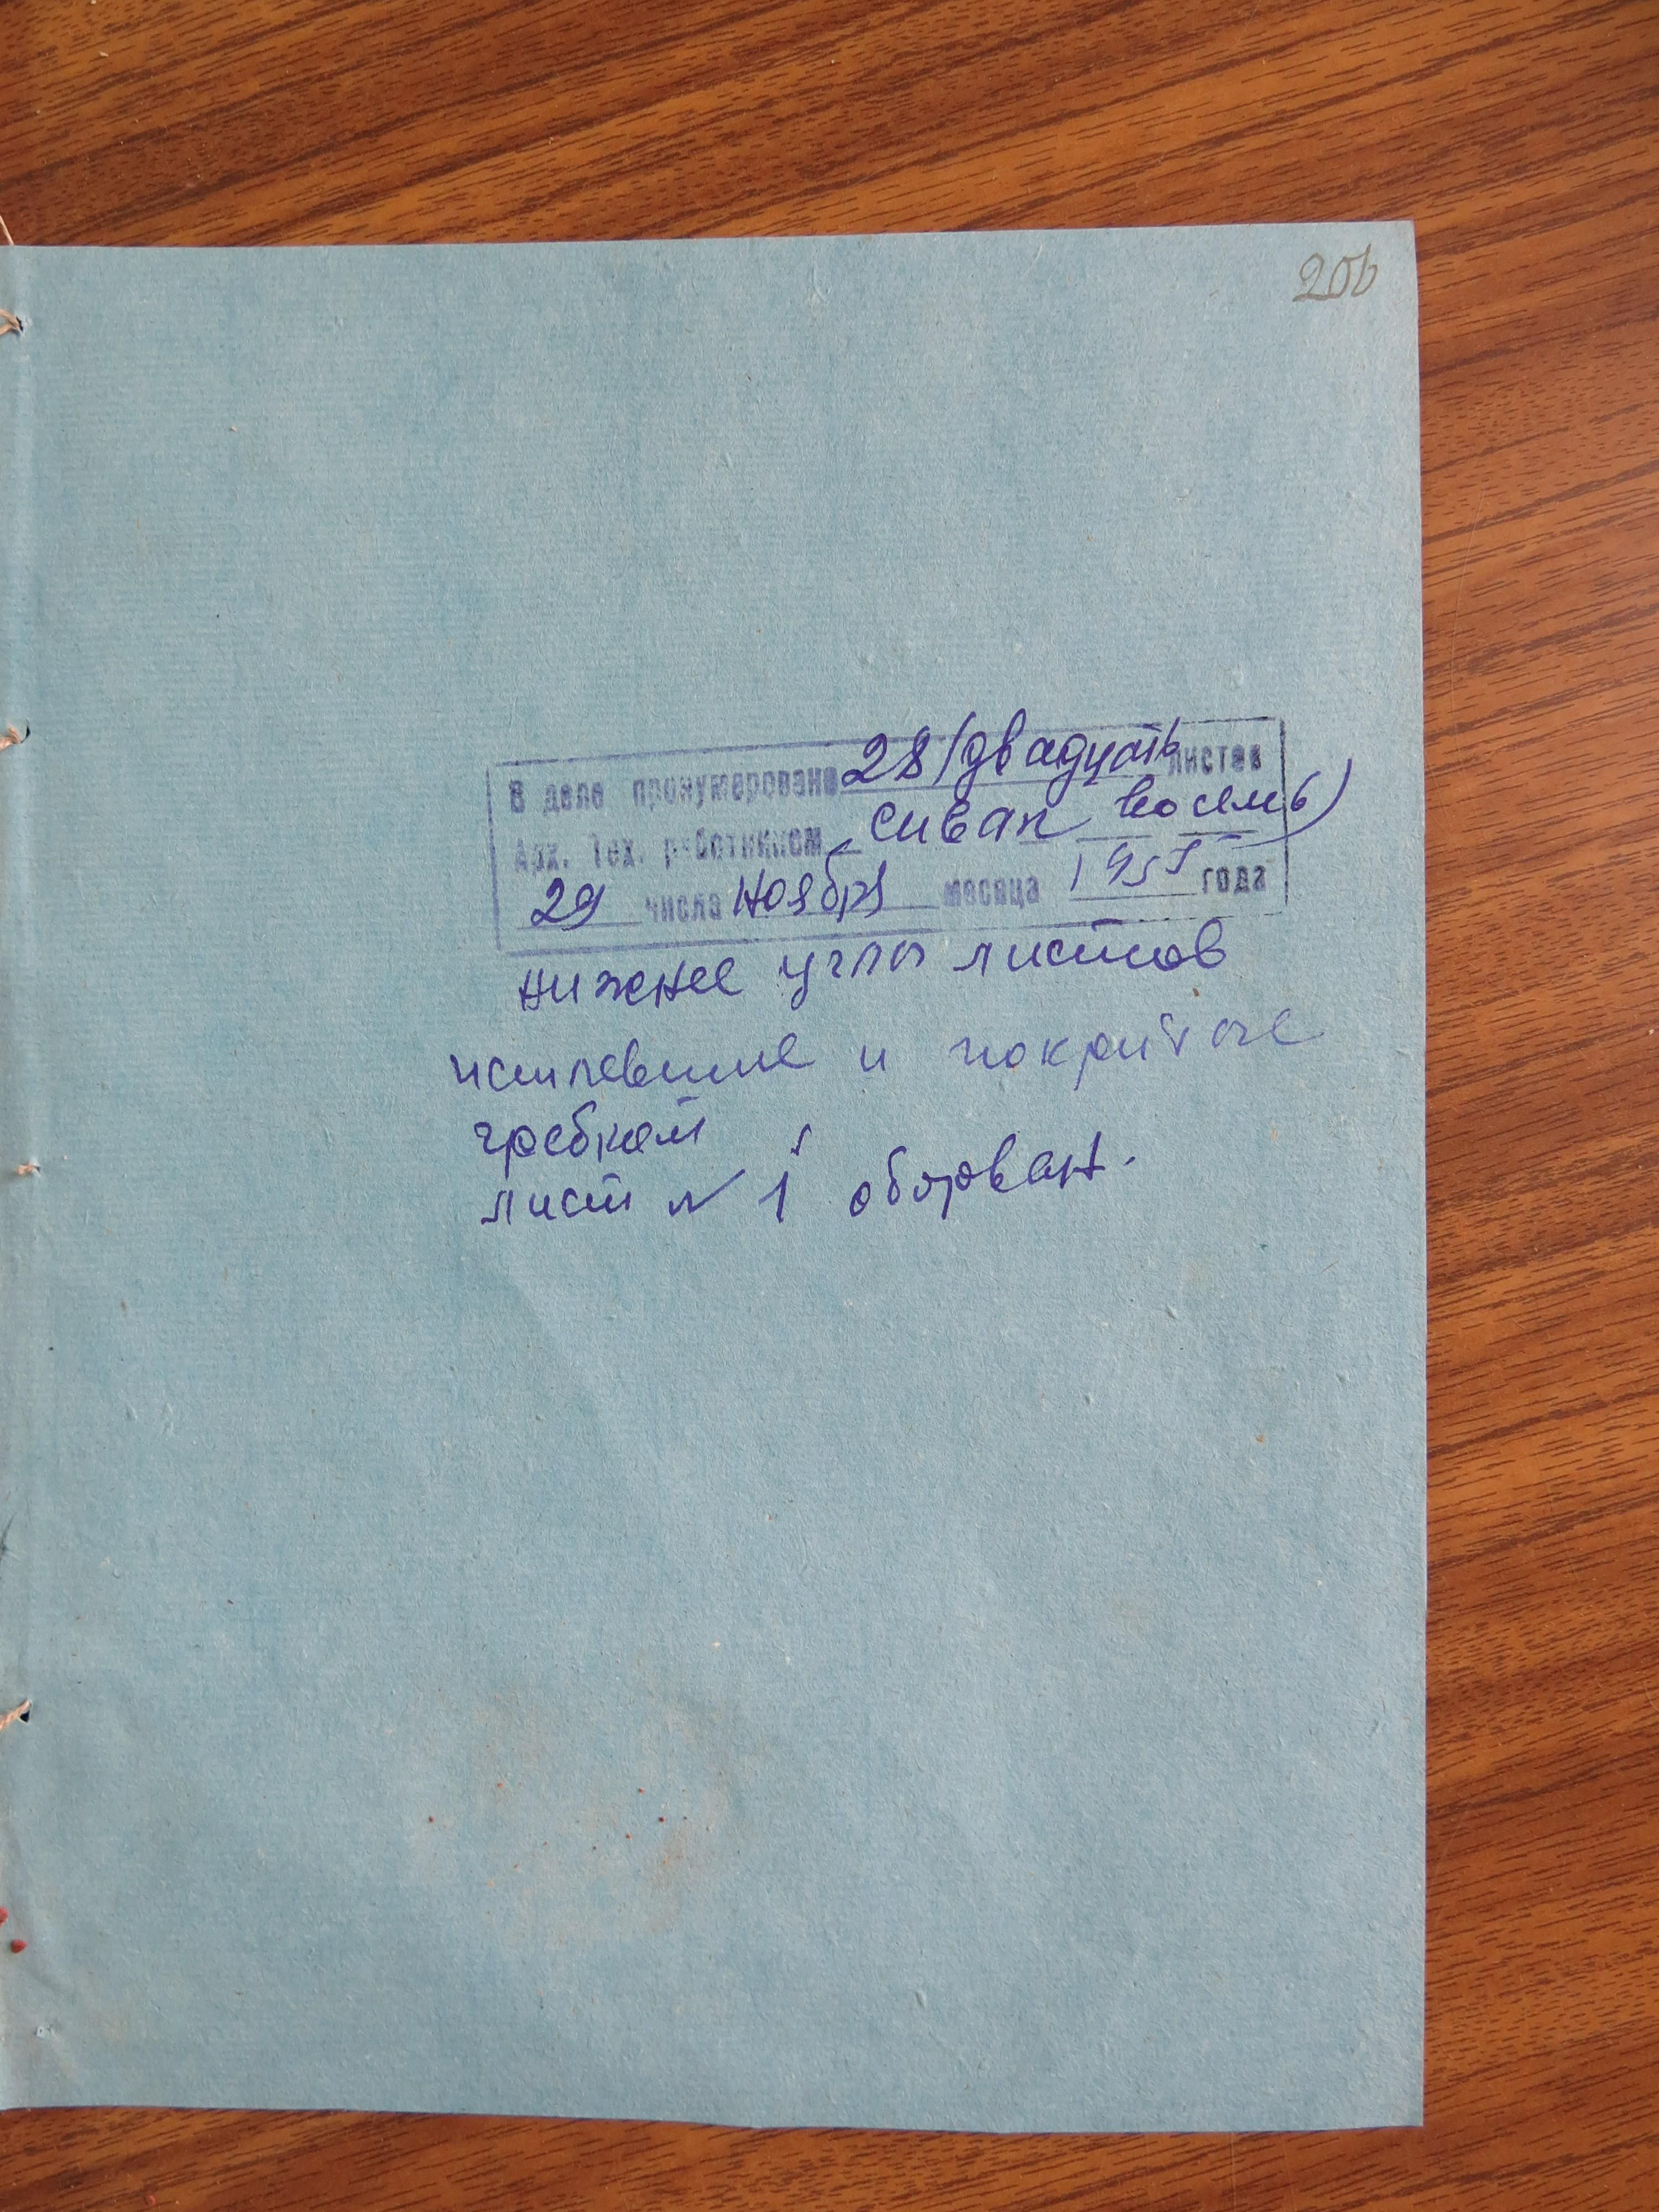 206
В деле пронумеровано 28 (двадцать листов
Арх. Тех. работником Сивак восемь)
29 числа Ноября месяца 1957 года
Нижнее углы листов
истлевшие и покрытые
грибком
лист № 1 оборван.